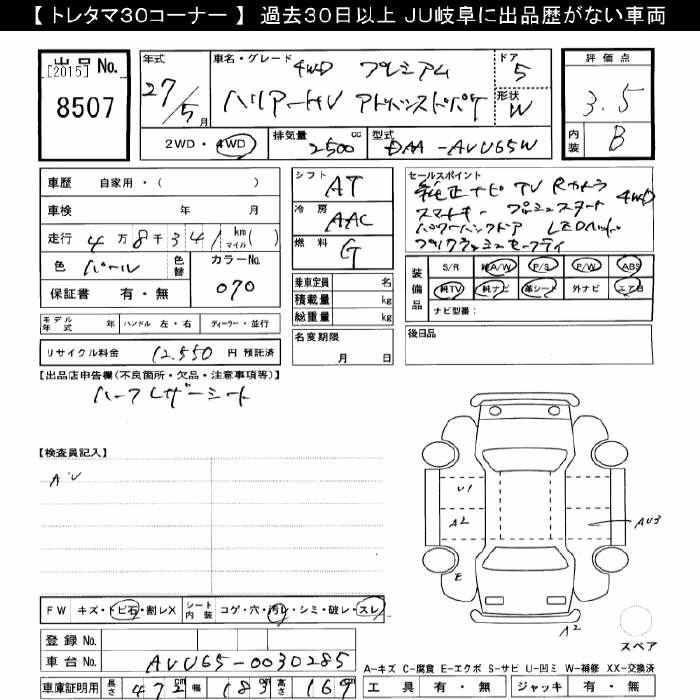 【 トレタマ30コーナー 】 過去30日以上 JU岐阜に出品歴がない車両
出品 No.
[2015]
8507
年式
27/5月
車名・グレード
4WD プレミアム
ハリアーHV アドバンスドパケ
ドア
5
形状
W
評価点
3.5
内装
B
2WD・4WD
排気量
2500 cc
型式
DAA-AVU65W
車歴 自家用・( )
車検 年 月
走行 4万8千341 km マイル( )
色 パール 色替
カラーNo.
070
保証書 有・無
シフト
AT
冷房
AAC
燃料
G
乗車定員 名
積載量 kg
総重量 kg
セールスポイント
純正ナビ TV Rカメラ 4WD
スマートキー プッシュスタート
パワーバックドア LEDヘッド
プリクラッシュセーフティ
装備品
S/R 純A/W P/S P/W ABS
純TV 純ナビ 革シート 外ナビ エアB
ナビ型番：
モデル年式 年 ハンドル 左・右 ディーラー・並行
リサイクル料金 12,550 円 預託済
名変期限
月 日
後日品
【出品店申告欄(不良箇所・欠品・注意事項等)】
ハーフレザーシート
【検査員記入】
AU
U1
A2
AU3
E
A2
スペア
FW キズ・トビ石・割レX シート内装 コゲ・穴・汚レ・シミ・破レ・スレ
登録 No.
車台 No. AVU65-0030285
車庫証明用 長さ 472 cm 幅 183 cm 高さ 169
A-キズ C-腐食 E-エクボ S-サビ U-凹ミ W-補修 XX-交換済
工具 有・無 ジャッキ 有・無